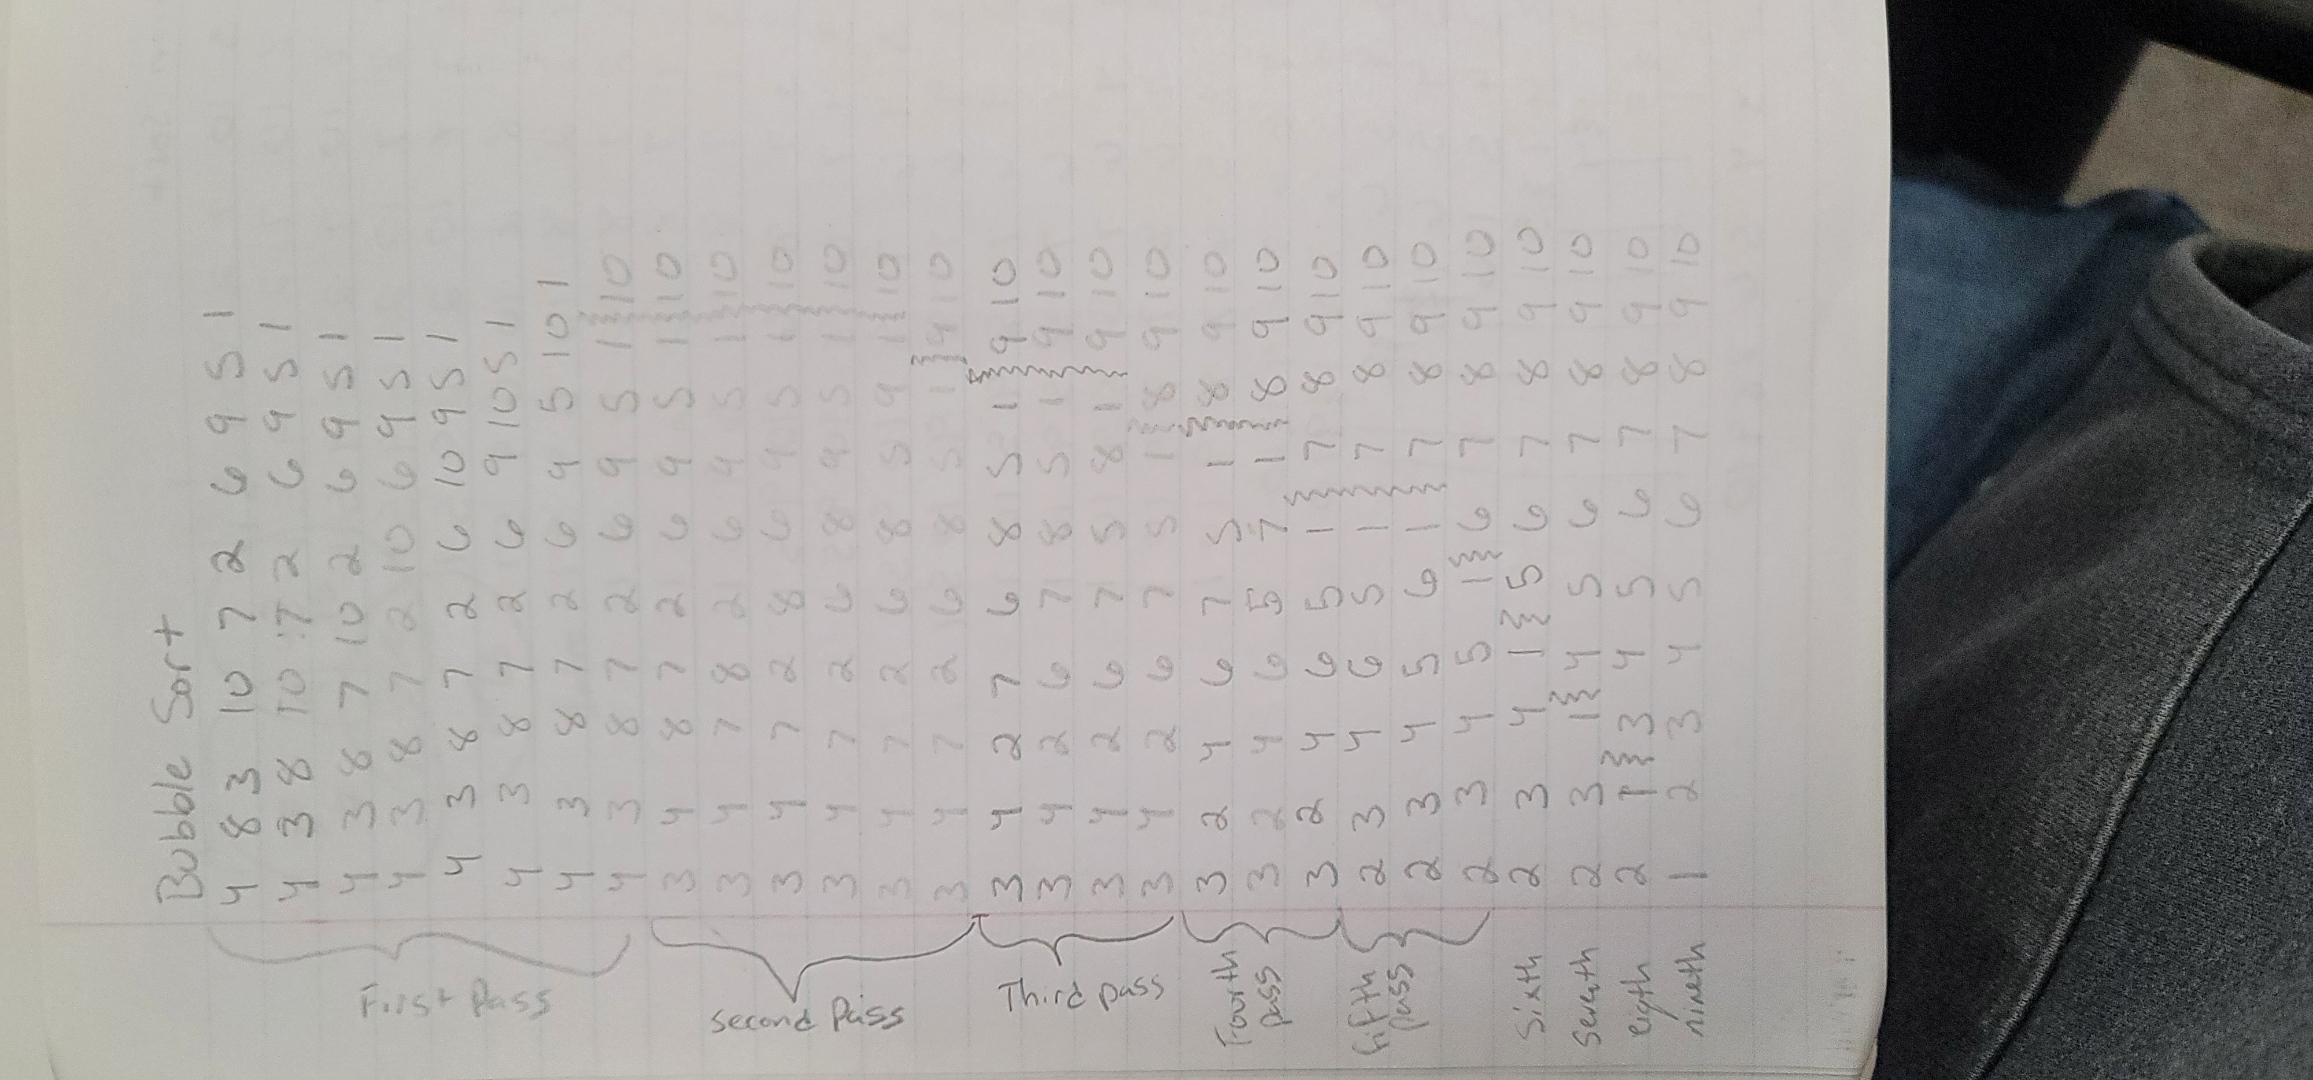 Bubble Sort
4 8 3 10 7 2 6 9 5 1
4 3 8 10 7 2 6 9 5 1
4 3 8 7 10 2 6 9 5 1
4 3 8 7 2 10 6 9 5 1
4 3 8 7 2 6 10 9 5 1
4 3 8 7 2 6 9 10 5 1
4 3 8 7 2 6 9 5 10 1
4 3 8 7 2 6 9 5 1 10
First Pass
3 4 8 7 2 6 9 5 1 10
3 4 7 8 2 6 9 5 1 10
3 4 7 2 8 6 9 5 1 10
3 4 7 2 6 8 9 5 1 10
3 4 7 2 6 8 5 9 1 10
3 4 7 2 6 8 5 1 9 10
Second Pass
3 4 2 7 6 8 5 1 9 10
3 4 2 6 7 8 5 1 9 10
3 4 2 6 7 5 8 1 9 10
3 4 2 6 7 5 1 8 9 10
Third pass
3 2 4 6 7 5 1 8 9 10
3 2 4 6 5 7 1 8 9 10
3 2 4 6 5 1 7 8 9 10
Fourth
pass
2 3 4 6 5 1 7 8 9 10
2 3 4 5 6 1 7 8 9 10
2 3 4 5 1 6 7 8 9 10
fifth
pass
Sixth 2 3 4 1 5 6 7 8 9 10
Seventh 2 3 1 4 5 6 7 8 9 10
eigth 2 1 3 4 5 6 7 8 9 10
nineth 1 2 3 4 5 6 7 8 9 10